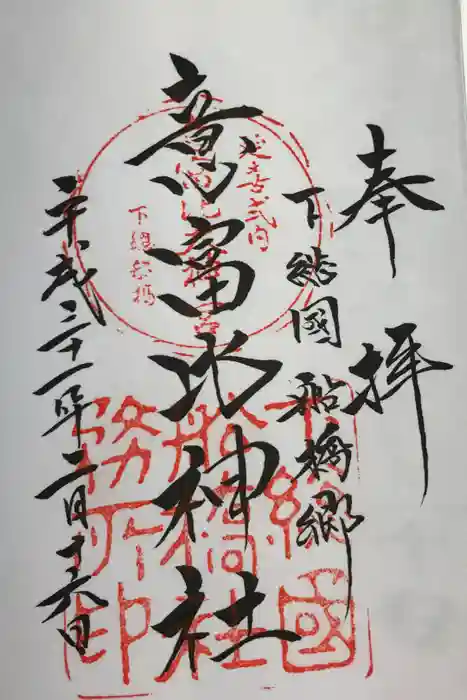 奉拝
下総國船橋郷
意富比神社
平成三十一年二月十六日
延喜式内
意富比大神宮
下總船橋
下総國
船橋大神社
務所印